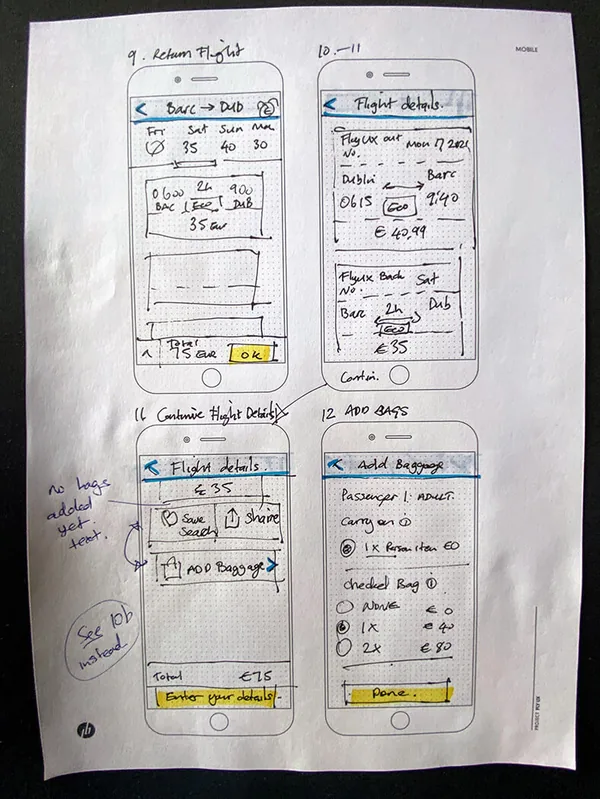 MOBILE
9. Return Flight
Barc → DUB
Fri Sat Sun Mon
35 40 30
0600 2h 900
BAC Eco DUB
35 EUR
Total
75 EUR
OK
10.-11
Flight details.
FlyUX out Mon 17 2021
No.
Dublin Barc
0615 Eco 9:40
€ 40,99
FlyUX Back Sat
No.
Barc 2h Dub
Eco
€ 35
Contin.
11 Continue Flight Details
Flight details.
€ 35
Save Search
Share
ADD Baggage
Total €75
Enter your details.
no bags
added
yet
text.
See 10b
instead
12 ADD BAGS
Add Baggage
Passenger 1. ADULT.
Carry on i
1x Person item €0
Checked Bag i
NONE € 0
1X € 40
2X € 80
Done.